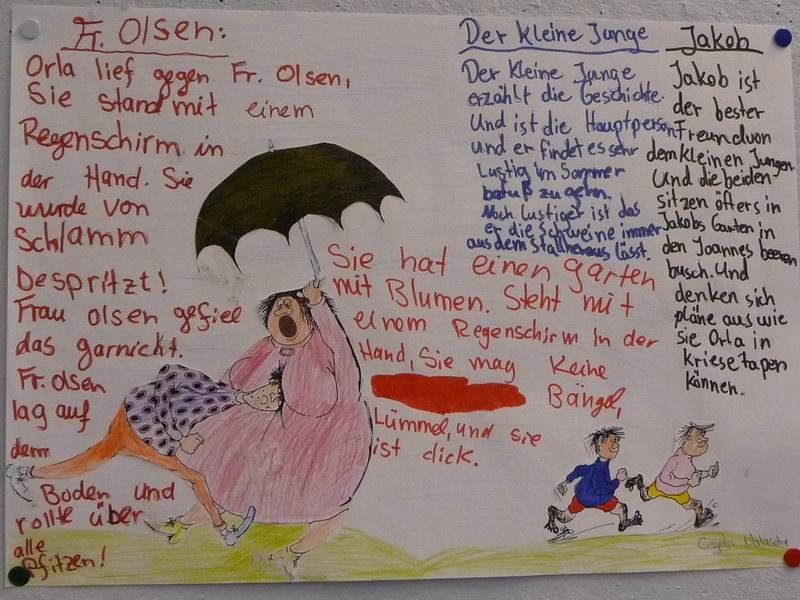 Fr. Olsen:
Orla lief gegen Fr. Olsen,
Sie stand mit einem
Regenschirm in
der Hand. Sie
wurde von
Schlamm
Despritzt!
Frau Olsen gefiel
das garnicht.
Fr. Olsen
lag auf
dem
Boden und
rollte über
alle
Pfitzen!
Sie hat einen garten
mit Blumen. Steht mit
einem Regenschirm in der
Hand, Sie mag keine
Bängel,
Lümmel, und sie
ist dick.
Der kleine Junge
Der kleine Junge
erzählt die Geschichte.
Und ist die Hauptperson
und er findet es sehr
Lustig im Sommer
barfuß zu gehn.
Noch lustiger ist das
er die Schweine immer
aus dem Stall heraus lässt.
Jakob
Jakob ist
der bester
Freund von
dem kleinen Jungen.
Und die beiden
sitzen öfters in
Jakobs Garten in
den Joannes beeren
busch. Und
denken sich
pläne aus wie
sie Orla in
kriese tapen
können.